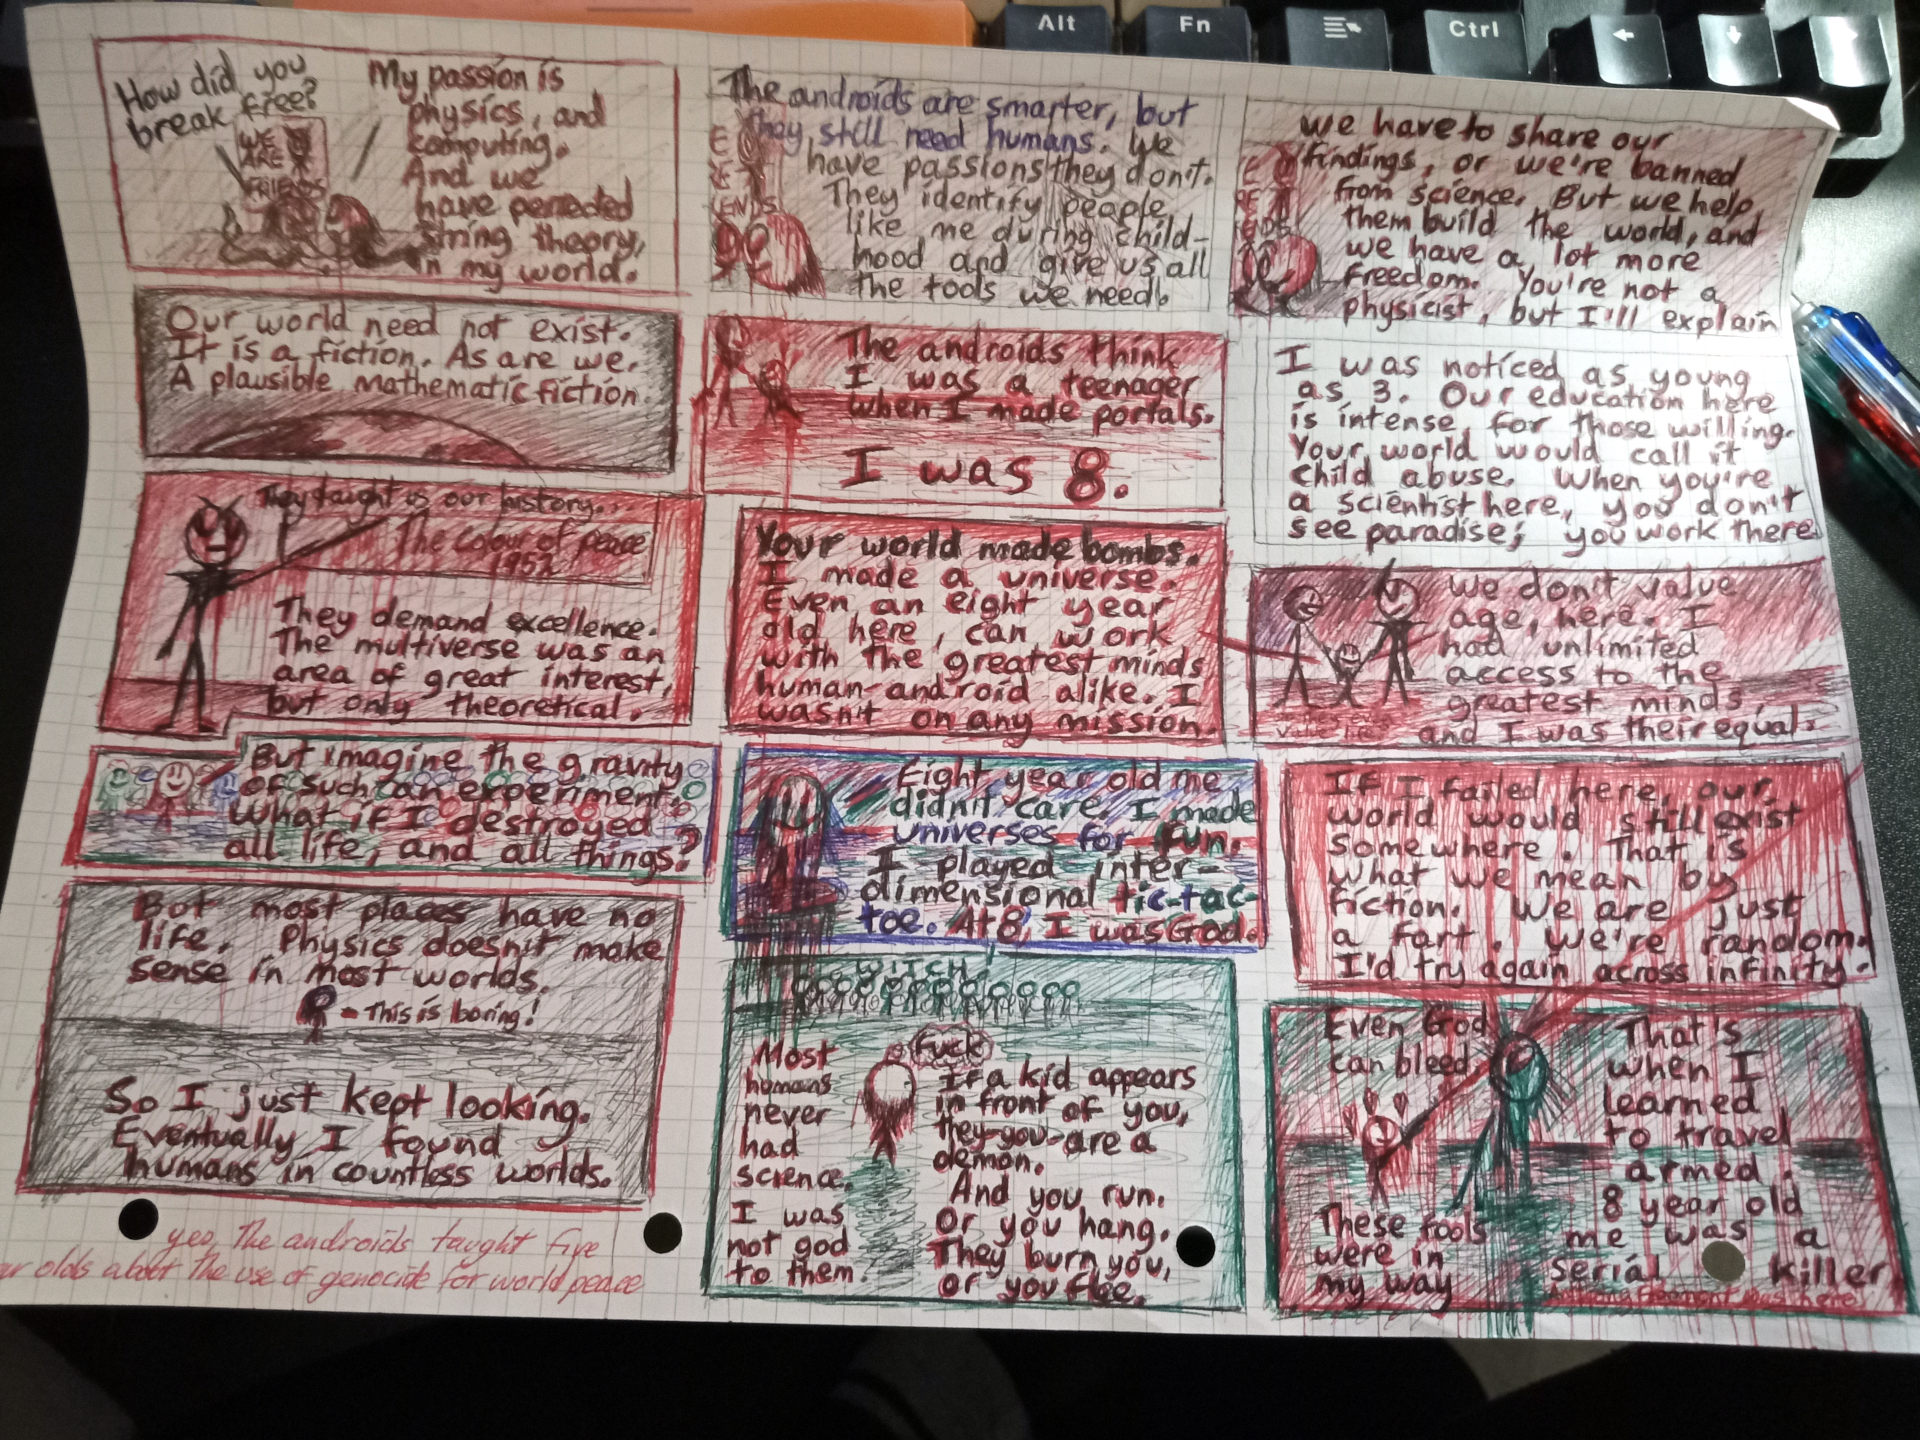 Alt
Fn
Ctrl
How did you
break free?
WE
ARE
FRIENDS
My passion is
physics, and
computing.
And we
have perfected
string theory,
in my world.
The androids are smarter, but
they still need humans. We
have passions they don't.
They identify people
like me during child-
hood and give us all
the tools we need.
E
RE
ENDS
We have to share our
findings, or we're banned
from science. But we help
them build the world, and
we have a lot more
freedom. You're not a
physicist, but I'll explain
E
RE
ENDS
Our world need not exist.
It is a fiction. As are we.
A plausible mathematic fiction.
The androids think
I was a teenager
when I made portals.
I was 8.
I was noticed as young
as 3. Our education here
is intense, for those willing.
Your world would call it
child abuse. When you're
a scientist here, you don't
see paradise; you work there.
They taught us our history...
The Colour of peace
1952
They demand excellence.
The multiverse was an
area of great interest,
but only theoretical.
Your world made bombs.
I made a universe.
Even an eight year
old here, can work
with the greatest minds
human-android alike. I
wasn't on any mission.
We don't value
age, here. I
had unlimited
access to the
greatest minds,
and I was their equal.
But imagine the gravity
of such an experiment.
What if I destroyed
all life, and all things?
Eight year old me
didn't care. I made
universes for fun.
I played inter-
dimensional tic-tac-
toe. At 8, I was God.
If I failed here, our
world would still exist
somewhere. That is
what we mean by
fiction. We are just
a fart. We're random.
I'd try again across infinity.
But most places have no
life. Physics doesn't make
sense in most worlds.
- This is boring!
So I just kept looking.
Eventually I found
humans in countless worlds.
WITCH!
Fuck
Most
humans
never
had
science.
I was
not god
to them.
If a kid appears
in front of you,
they-you-are a
demon.
And you run.
Or you hang.
They burn you,
or you flee.
Even God
can bleed.
These fools
were in
my way
That's
when I
learned
to travel
armed.
8 year old
me was a
serial killer
yes, The androids taught five
olds about the use of genocide for world peace